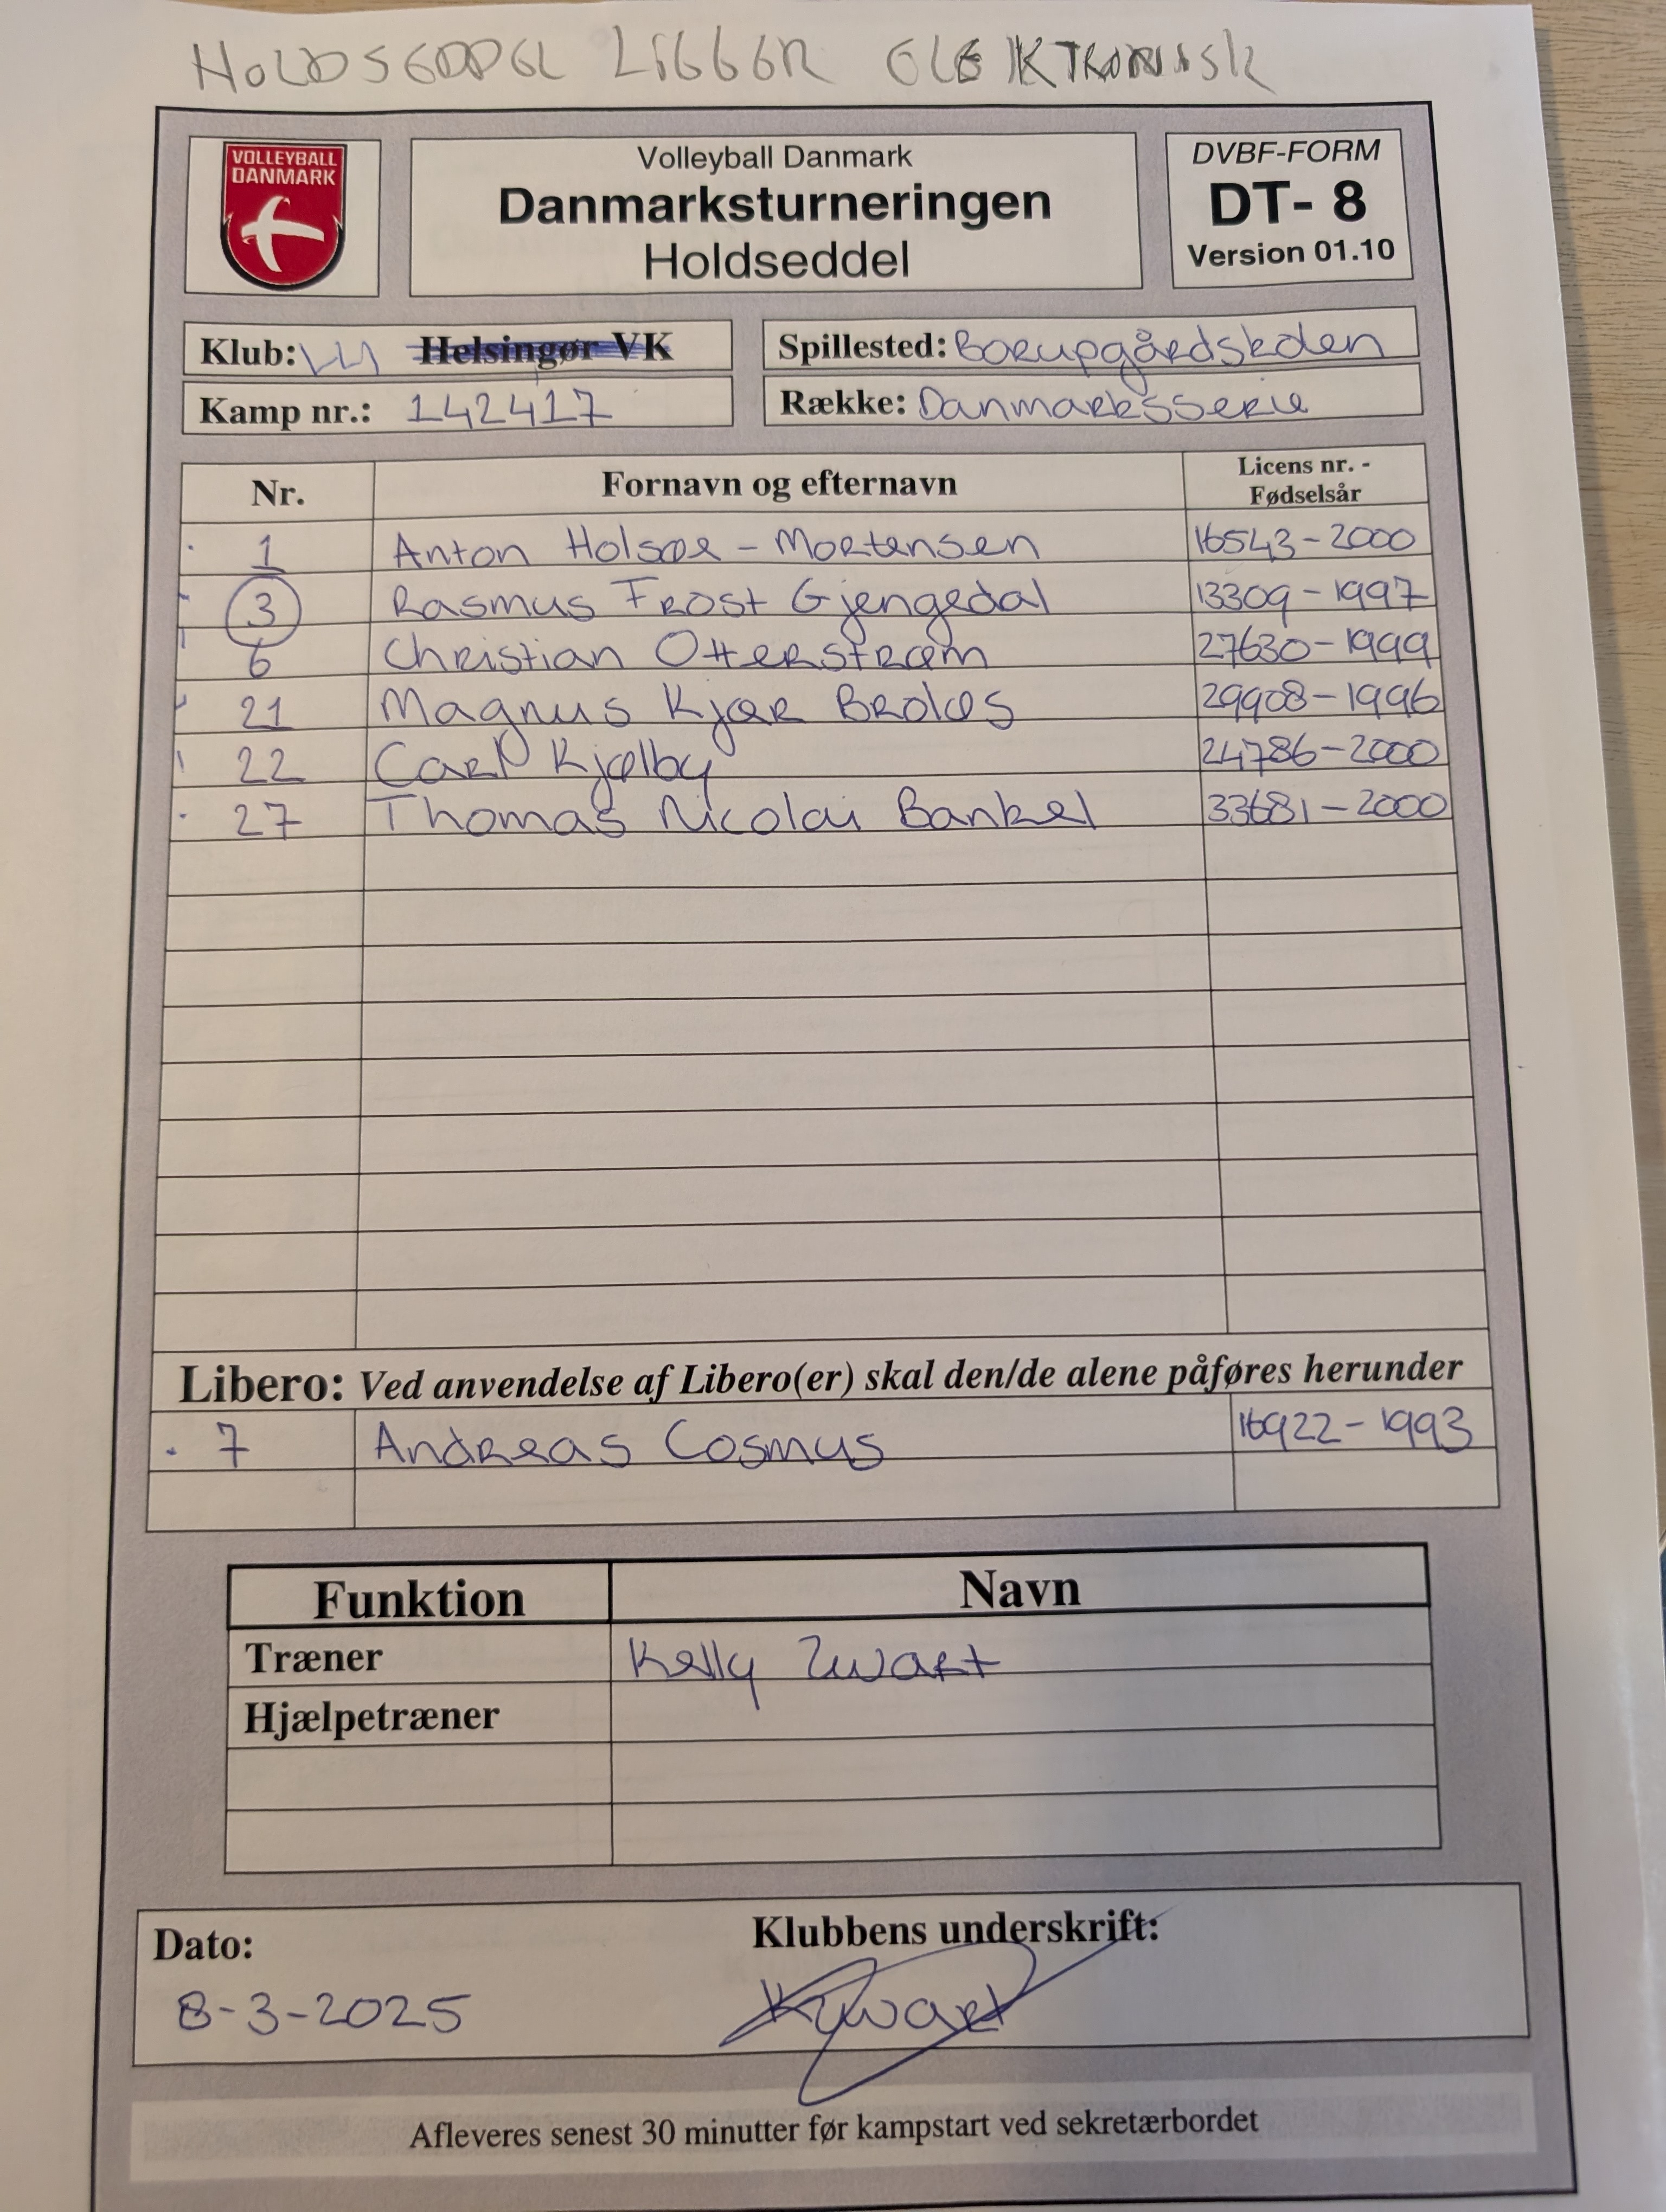 HOLDSEDDEL LIGGER ELEKTRONISK
VOLLEYBALL
DANMARK
Volleyball Danmark
Danmarksturneringen
Holdseddel
DVBF-FORM
DT- 8
Version 01.10
Klub: Helsingør VK
Spillested: Borupgårdskolen
Kamp nr.: 142417
Række: Danmarksserie
Nr. Fornavn og efternavn Licens nr. -
Fødselsår
1 Anton Holsøe - Mortensen 16543-2000
3 Rasmus Frost Gjengedal 13309-1997
6 Christian Otterstrøm 27630-1999
21 Magnus Kjær 29908-1996
22 Carl Kjølby 24786-2000
27 Thomas Nicolai Bankel 33681-2000
Libero: Ved anvendelse af Libero(er) skal den/de alene påføres herunder
7 Andreas Cosmus 16922-1993
Funktion Navn
Træner Kelly Zwart
Hjælpetræner
Dato: Klubbens underskrift:
8-3-2025 KZwart
Afleveres senest 30 minutter før kampstart ved sekretærbordet